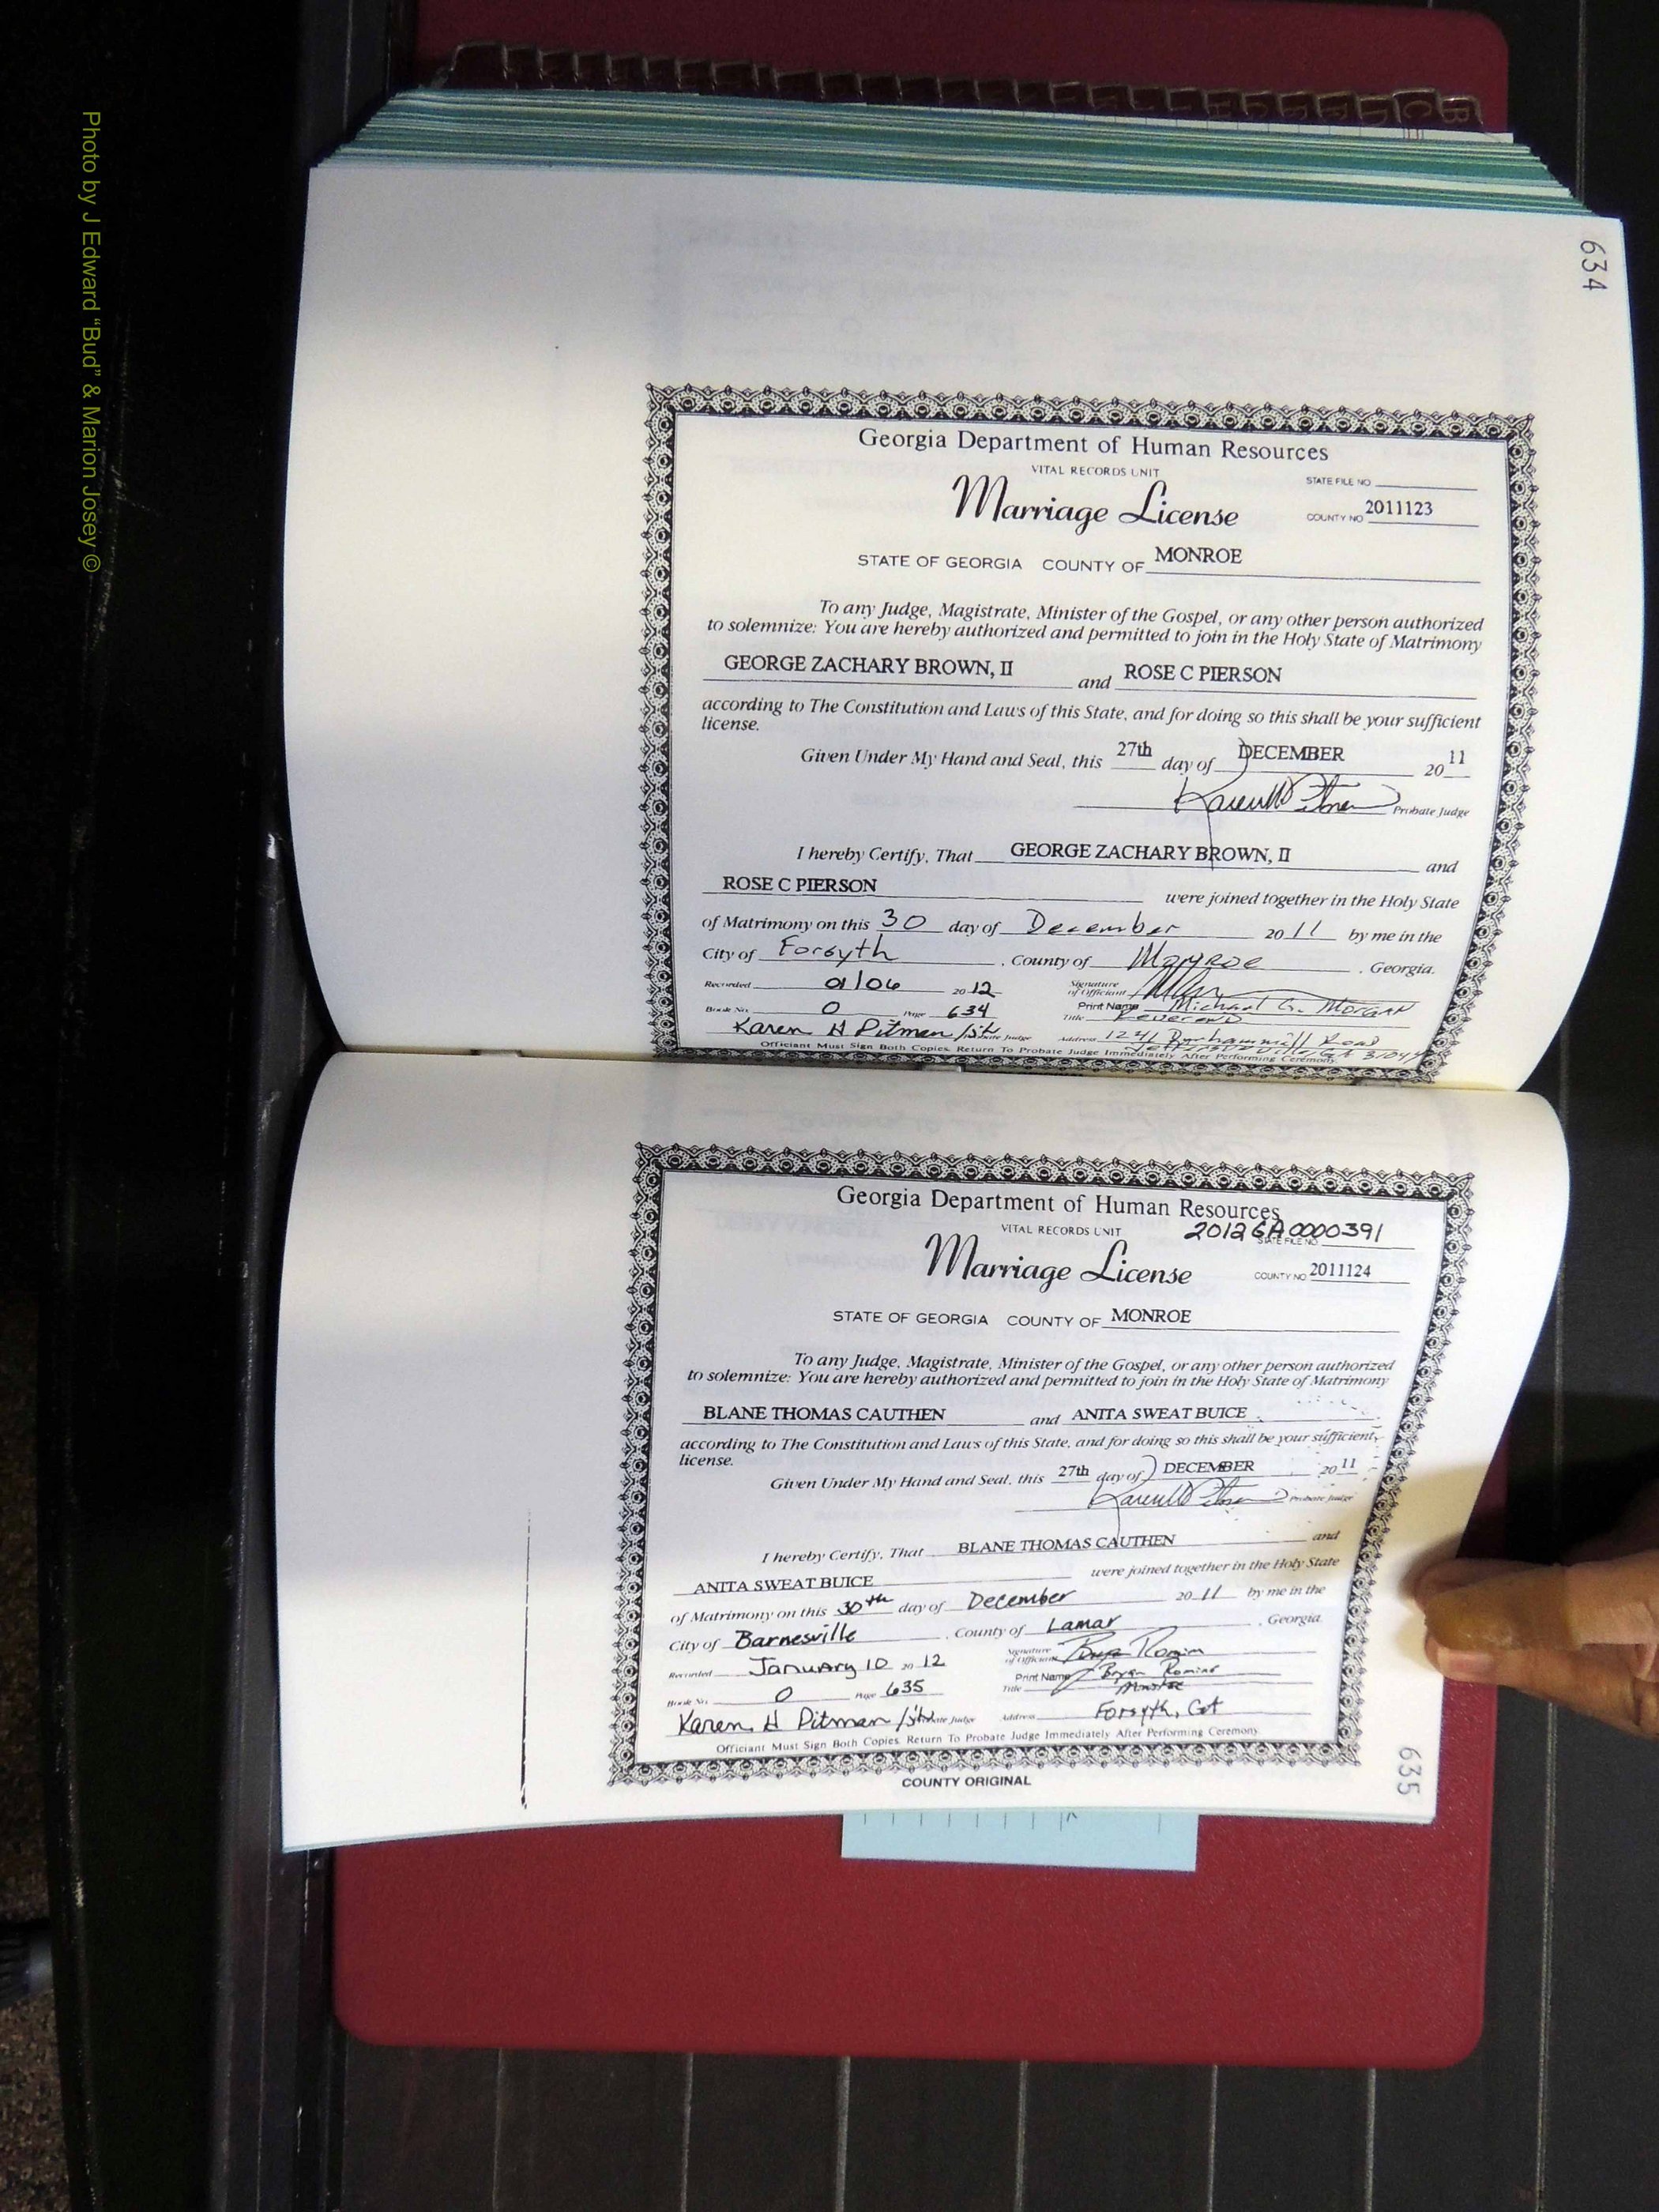 Photo by J Edward "Bud" & Marion Josey ©
634
Georgia Department of Human Resources
VITAL RECORDS UNIT
STATE FILE NO
Marriage License
COUNTY NO 2011123
STATE OF GEORGIA COUNTY OF MONROE
To any Judge, Magistrate, Minister of the Gospel, or any other person authorized
to solemnize: You are hereby authorized and permitted to join in the Holy State of Matrimony
GEORGE ZACHARY BROWN, II and ROSE C PIERSON
according to The Constitution and Laws of this State, and for doing so this shall be your sufficient
license.
Given Under My Hand and Seal, this 27th day of DECEMBER 2011
Probate Judge
I hereby Certify, That GEORGE ZACHARY BROWN, II and
ROSE C PIERSON were joined together in the Holy State
of Matrimony on this 30 day of December 2011 by me in the
City of Forsyth, County of Monroe, Georgia.
Recorded 01/06 2012 Signature of Officiant
Book No. O Page 634 Print Name Michael G. Morgan
Title Reverend
Karen H Pitman /jh Probate Judge Address 1241 Road
GA
Officiant Must Sign Both Copies. Return To Probate Judge Immediately After Performing Ceremony.
Georgia Department of Human Resources
VITAL RECORDS UNIT 2012GA0000391
STATE FILE NO
Marriage License
COUNTY NO 2011124
STATE OF GEORGIA COUNTY OF MONROE
To any Judge, Magistrate, Minister of the Gospel, or any other person authorized
to solemnize: You are hereby authorized and permitted to join in the Holy State of Matrimony
BLANE THOMAS CAUTHEN and ANITA SWEAT BUICE
according to The Constitution and Laws of this State, and for doing so this shall be your sufficient
license.
Given Under My Hand and Seal, this 27th day of DECEMBER 2011
Probate Judge
I hereby Certify, That BLANE THOMAS CAUTHEN and
ANITA SWEAT BUICE were joined together in the Holy State
of Matrimony on this 30th day of December 2011 by me in the
City of Barnesville, County of Lamar, Georgia.
Recorded January 10 2012 Signature of Officiant
Print Name Bryan Romine
Book No. O Page 635 Title
Karen H Pitman /jh Probate Judge Address Forsyth, GA
Officiant Must Sign Both Copies. Return To Probate Judge Immediately After Performing Ceremony
COUNTY ORIGINAL
635